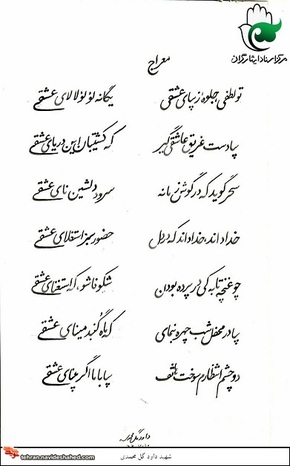 مرکز اسناد ایثارگران
معراج
تو لطفی جلوهٔ زیبای عشقی یگانه لؤلؤ لالای عشقی
پادست غریق عاشقی گیر که کشتیبان این دریای عشقی
سحر گوید که در گوش زمانه سرود دلنشین نای عشقی
خداداند، خداداند که در دل حضور سبز استغنای عشقی
چو غنچه تا به کی در پرده بودن شکوفا شو، که استغنای عشقی
بیا در محفل شب چهره بنمای که ماه گنبد مینای عشقی
دو چشم انتظارم سوخت بیا بابا اگر جویای عشقی
شهید داود گل محمدی
tehran.navideshahed.com